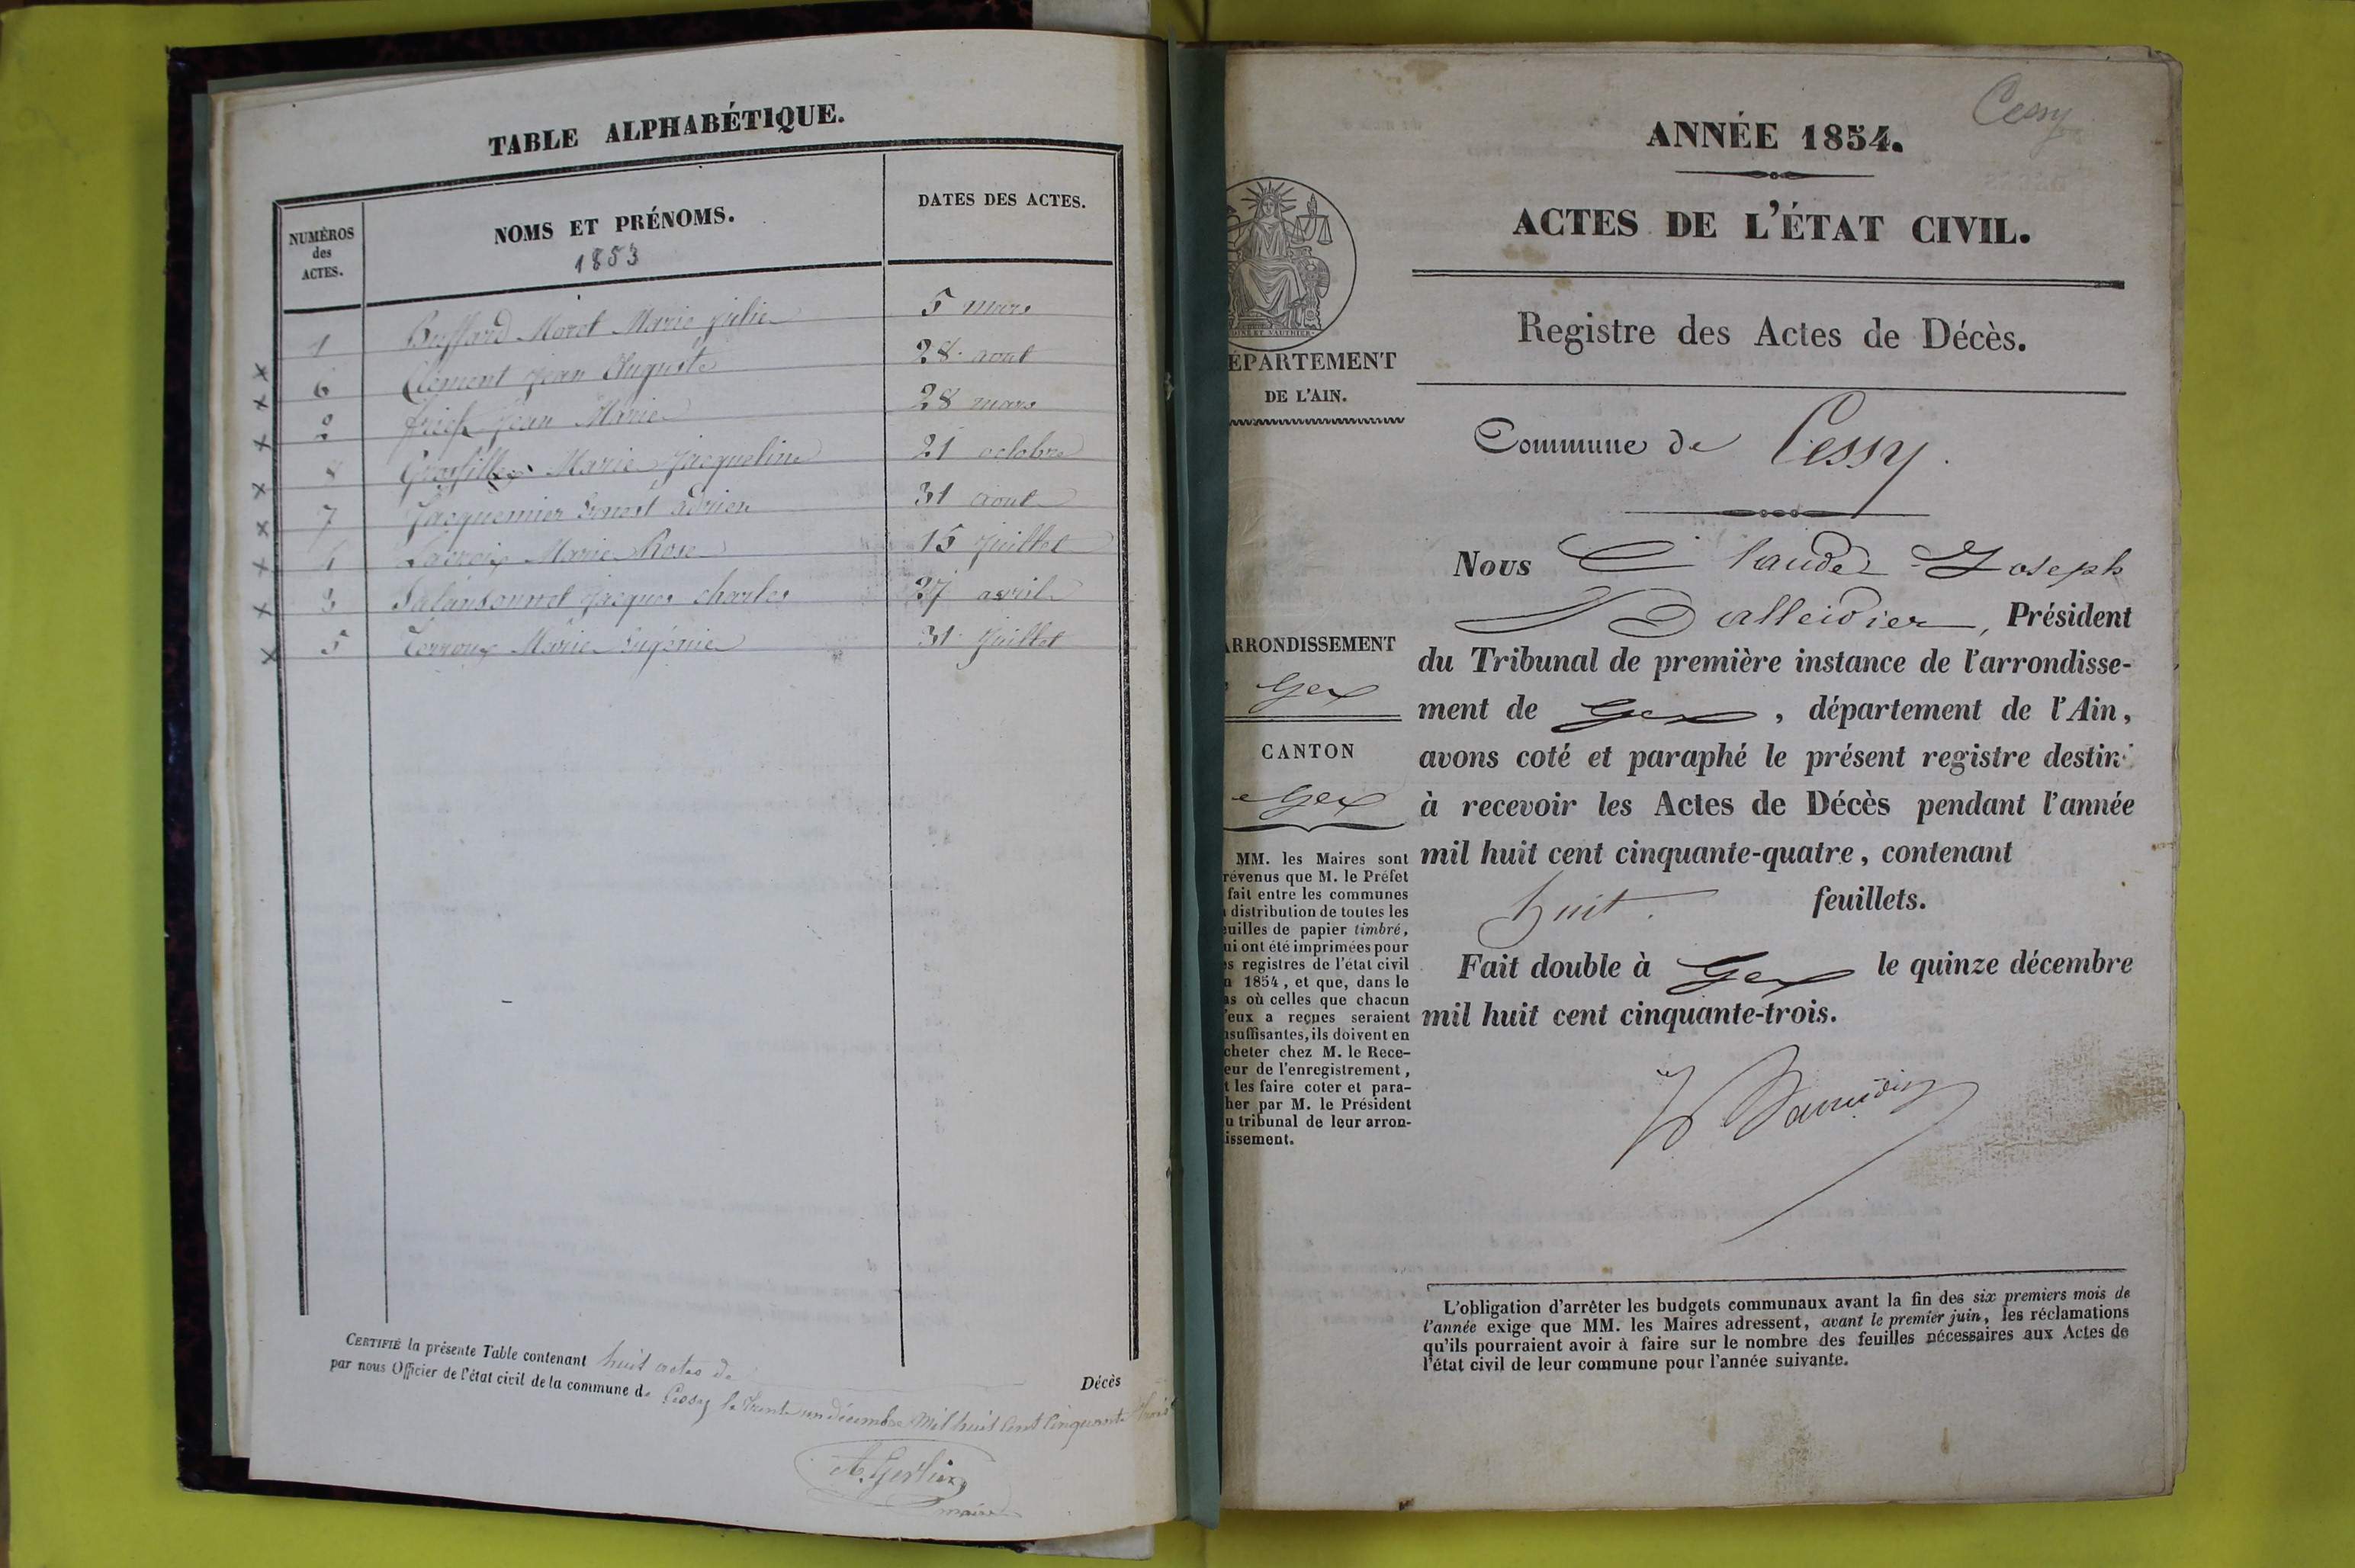 TABLE ALPHABÉTIQUE.
NUMÉROS
des
ACTES.
NOMS ET PRÉNOMS.
1853
DATES DES ACTES.
1 Buffard Morel Marie Julie 5 mars
6 Clément Jean Auguste 28 aout
2 Jean Marie 28 mars
8 Marie Jacqueline 21 octobre
7 Jacquemier Ernest Adrien 31 aout
Lacroix Marie Rose 15 juillet
3 Jacques Charles 27 avril
5 Terroux Marie Eugénie 31 juillet
CERTIFIÉ la présente Table contenant huit actes de Décès
par nous Officier de l'état civil de la commune de Cessy le trente un décembre mil huit cent cinquante trois
A. Gerlier
maire
Cessy
ANNÉE 1854.
ACTES DE L'ÉTAT CIVIL.
Registre des Actes de Décès.
Commune de Cessy.
ÉPARTEMENT
DE L'AIN.
ARRONDISSEMENT
Gex
CANTON
Gex
MM. les Maires sont
révenus que M. le Préfet
fait entre les communes
distribution de toutes les
uilles de papier timbré,
ui ont été imprimées pour
s registres de l'état civil
1854, et que, dans le
as où celles que chacun
'eux a reçues seraient
nsuffisantes, ils doivent en
cheter chez M. le Rece-
eur de l'enregistrement,
t les faire coter et para-
her par M. le Président
u tribunal de leur arron-
issement.
Nous Claude Joseph
Balleidier, Président
du Tribunal de première instance de l'arrondisse-
ment de Gex, département de l'Ain,
avons coté et paraphé le présent registre destiné
à recevoir les Actes de Décès pendant l'année
mil huit cent cinquante-quatre, contenant
huit. feuillets.
Fait double à Gex le quinze décembre
mil huit cent cinquante-trois.
L'obligation d'arrêter les budgets communaux avant la fin des six premiers mois de
l'année exige que MM. les Maires adressent, avant le premier juin, les réclamations
qu'ils pourraient avoir à faire sur le nombre des feuilles nécessaires aux Actes de
l'état civil de leur commune pour l'année suivante.